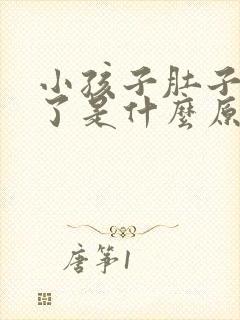 小孩子肚子
了是什麼原
唐筝1